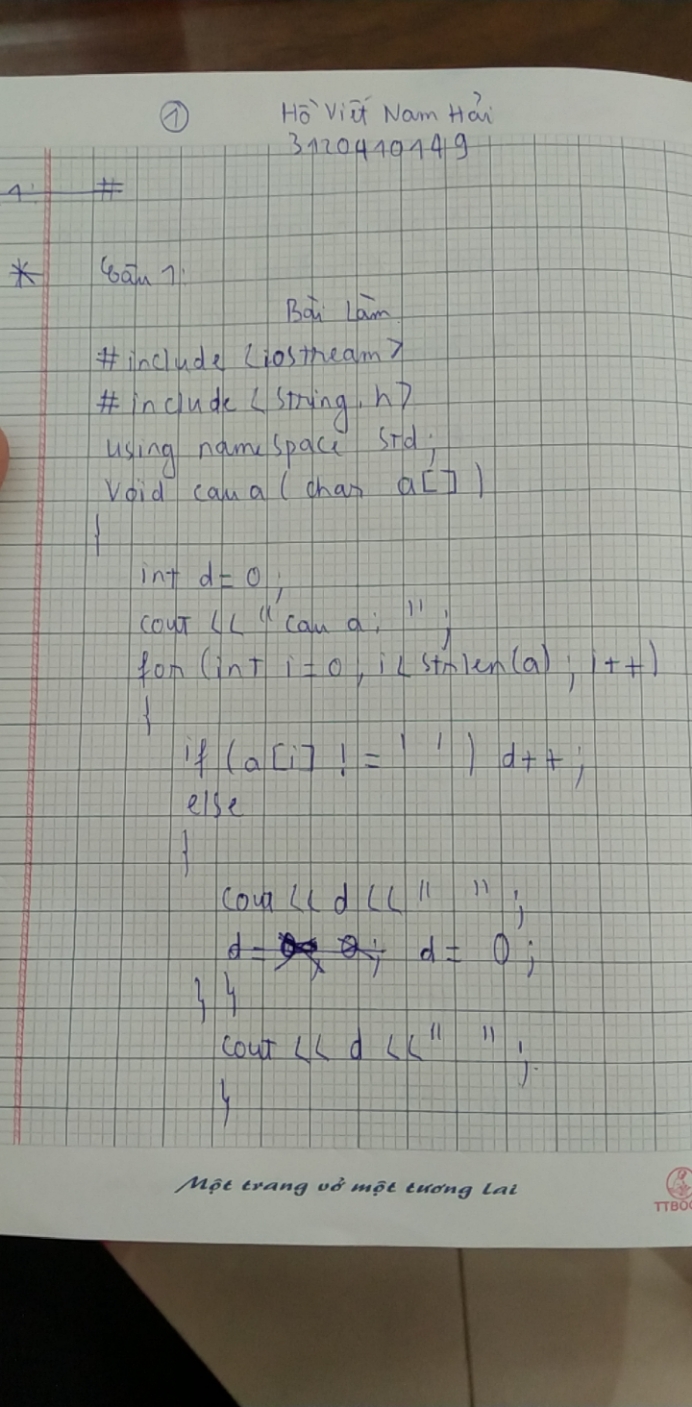 ① Hồ Viết Nam Hải
3120410149
1: #
* Câu 1:
Bài Làm
#include <iostream>
#include <string.h>
using namespace std;
void cau a ( char a[] )
{
int d = 0;
cout << " cau a: ";
for (int i = 0, i < strlen(a) ; i++)
{
if (a[i] != ' ') d++;
else
{
cout << d << " ";
d= d = 0;
} }
cout << d << " ";
}
Một trang vở một tương lai